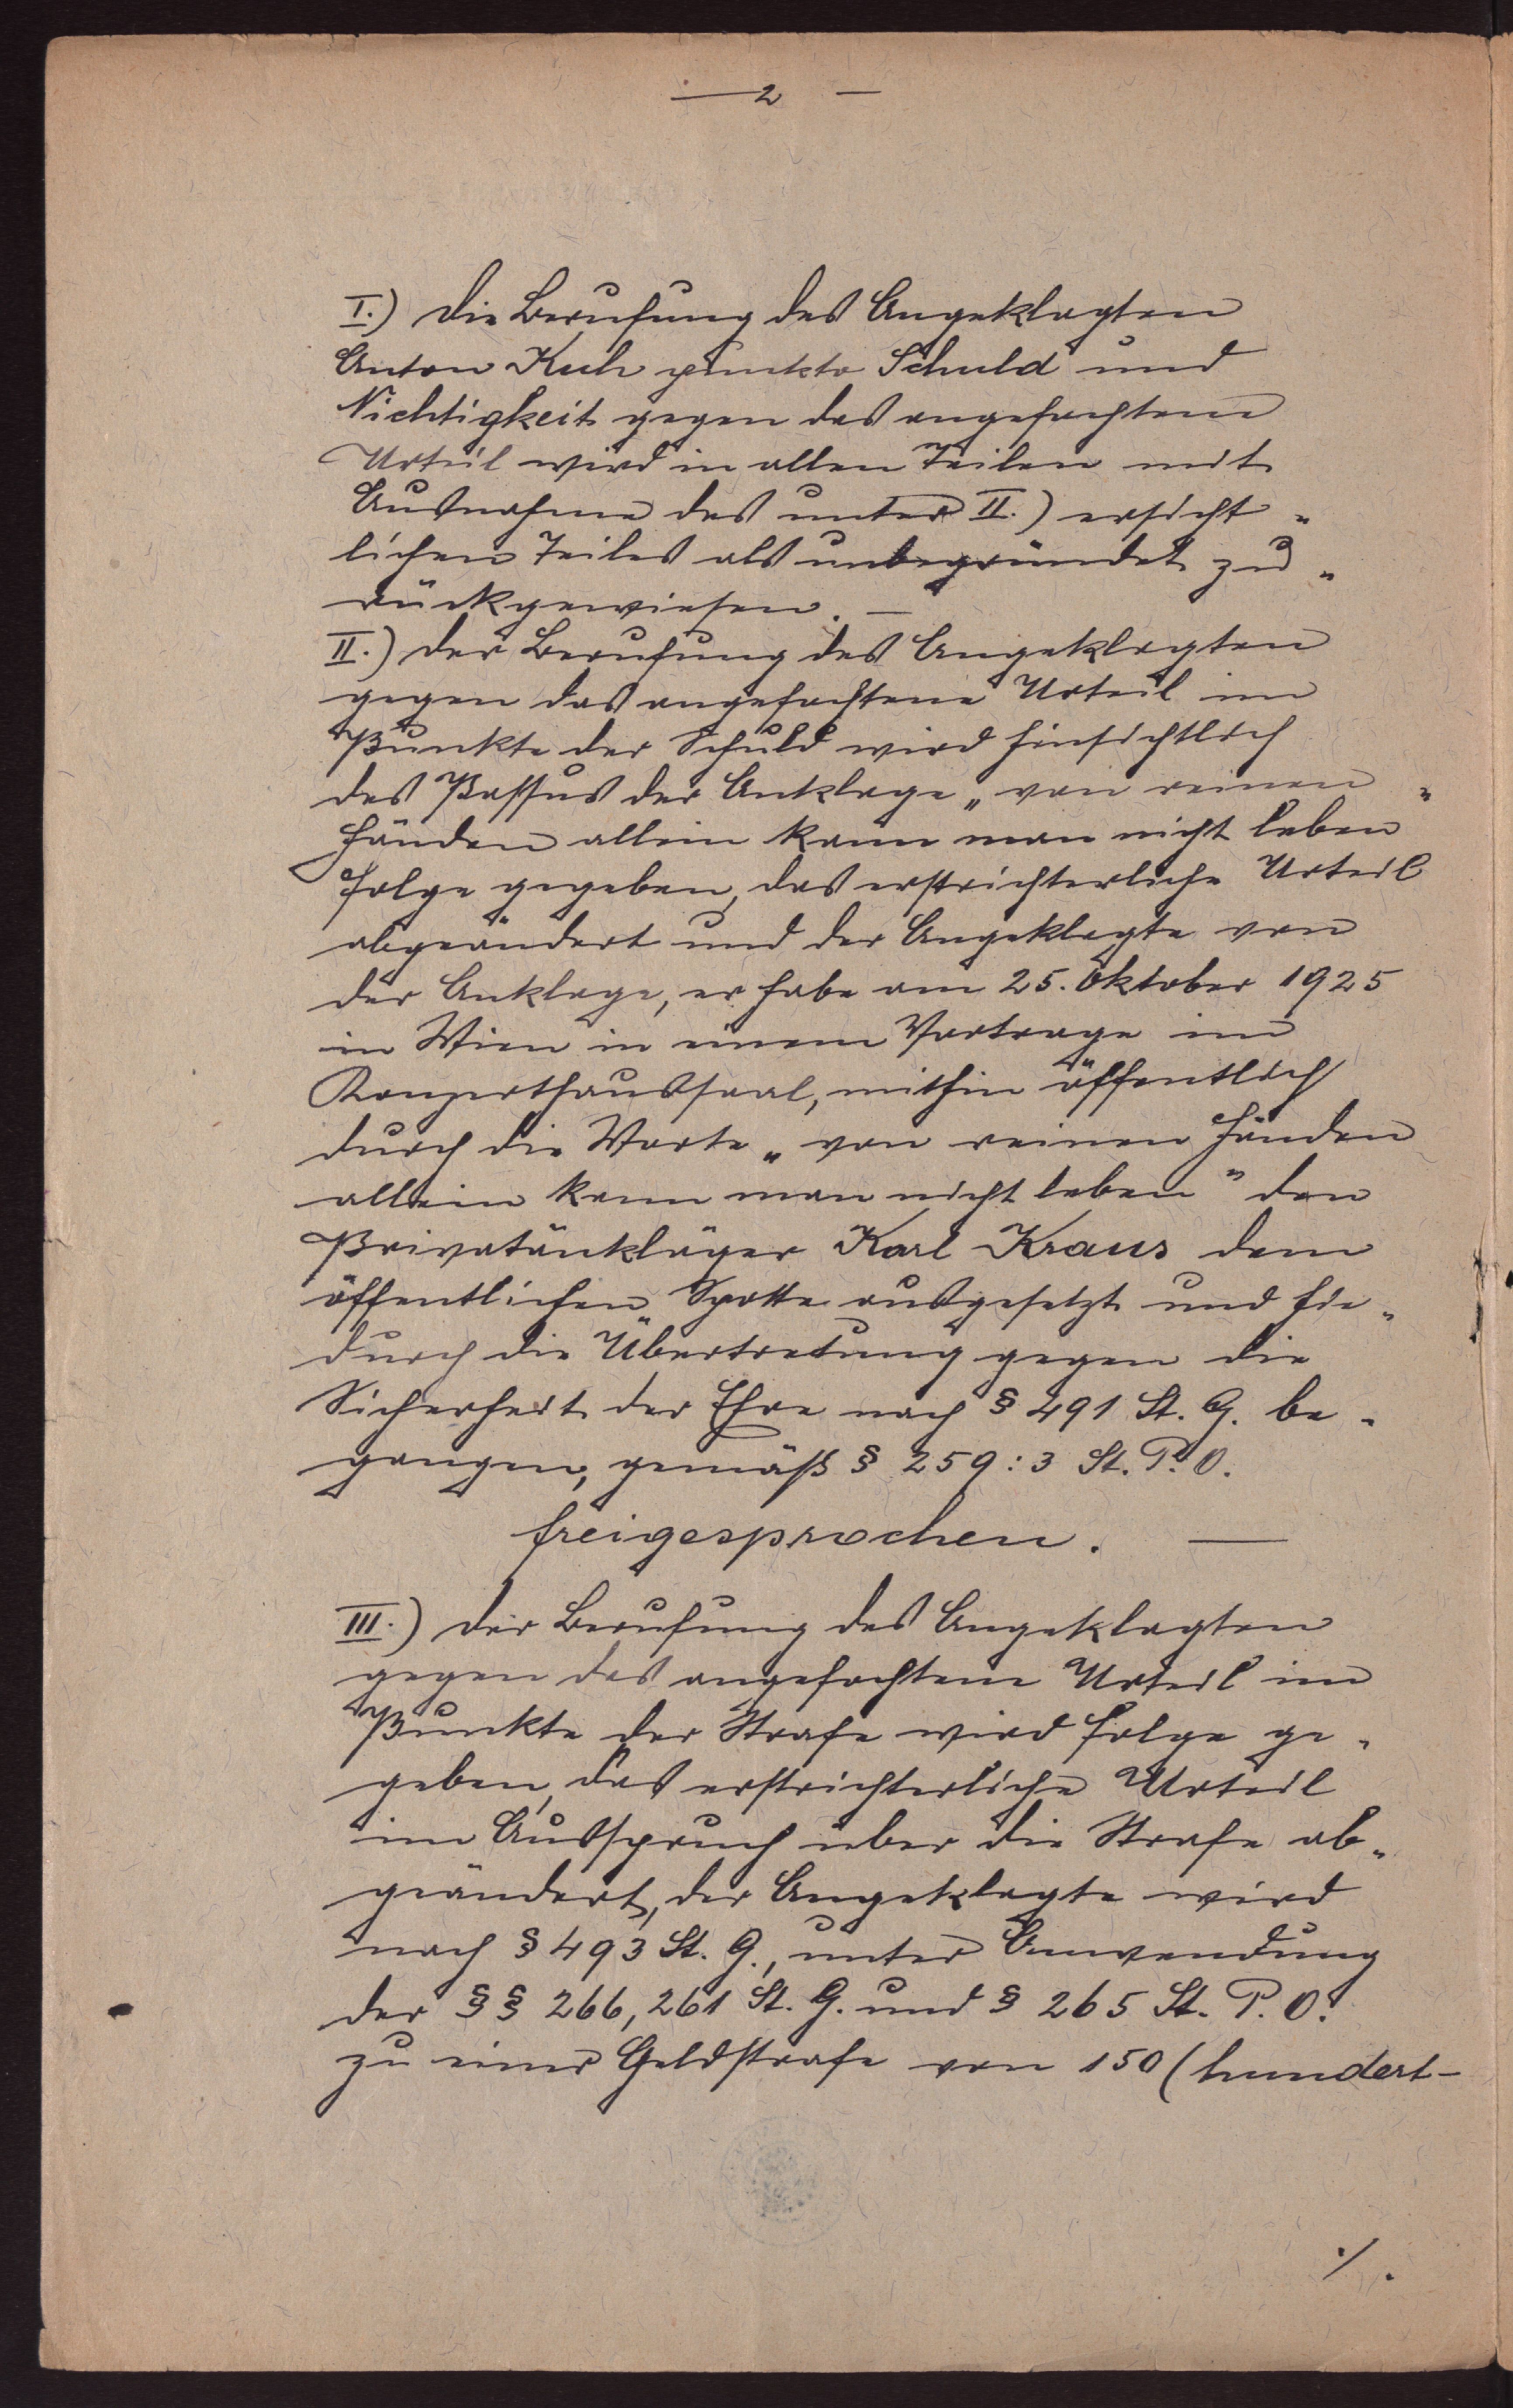 — 2 —
I.) Die Berufung des Angeklagten
Anton Kuh punkto Schuld und
Nichtigkeit gegen das angefochtene
Urteil wird in allen Teilen mit
Ausnahme des unter II.) ersicht„
lichen Teiles als unbegründet zu„
rückgewiesen. —
II.) Der Berufung des Angeklagten
gegen das angefochtene Urteil im
Punkte der Schuld wird hinsichtlich
des Passus der Anklage „von reinen
Händen allein kann man nicht leben"
Folge gegeben, das erstrichterliche Urteil
abgeändert und der Angeklagte von
der Anklage, er habe am 25. Oktober 1925
in Wien in einem Vortrage im
Konzerthaussaal, mithin öffentlich
durch die Worte „von reinen Händen
allein kann man nicht leben" den
Privatankläger Karl Kraus dem
öffentlichen Spotte ausgesetzt und hie„
durch die Übertretung gegen die
Sicherheit der Ehre nach § 491 St. G. be„
gangen, gemäß § 259:3 St. P. O.
freigesprochen. —
III.) Der Berufung des Angeklagten
gegen das angefochtene Urteil im
Punkte der Strafe wird Folge ge„
geben, das erstrichterliche Urteil
im Ausspruch über die Strafe ab„
geändert, der Angeklagte wird
nach § 493 St. G., unter Anwendung
der §§ 266, 261 St. G. und § 265 St. P. O.
zu einer Geldstrafe von 150 (hundert-
./.